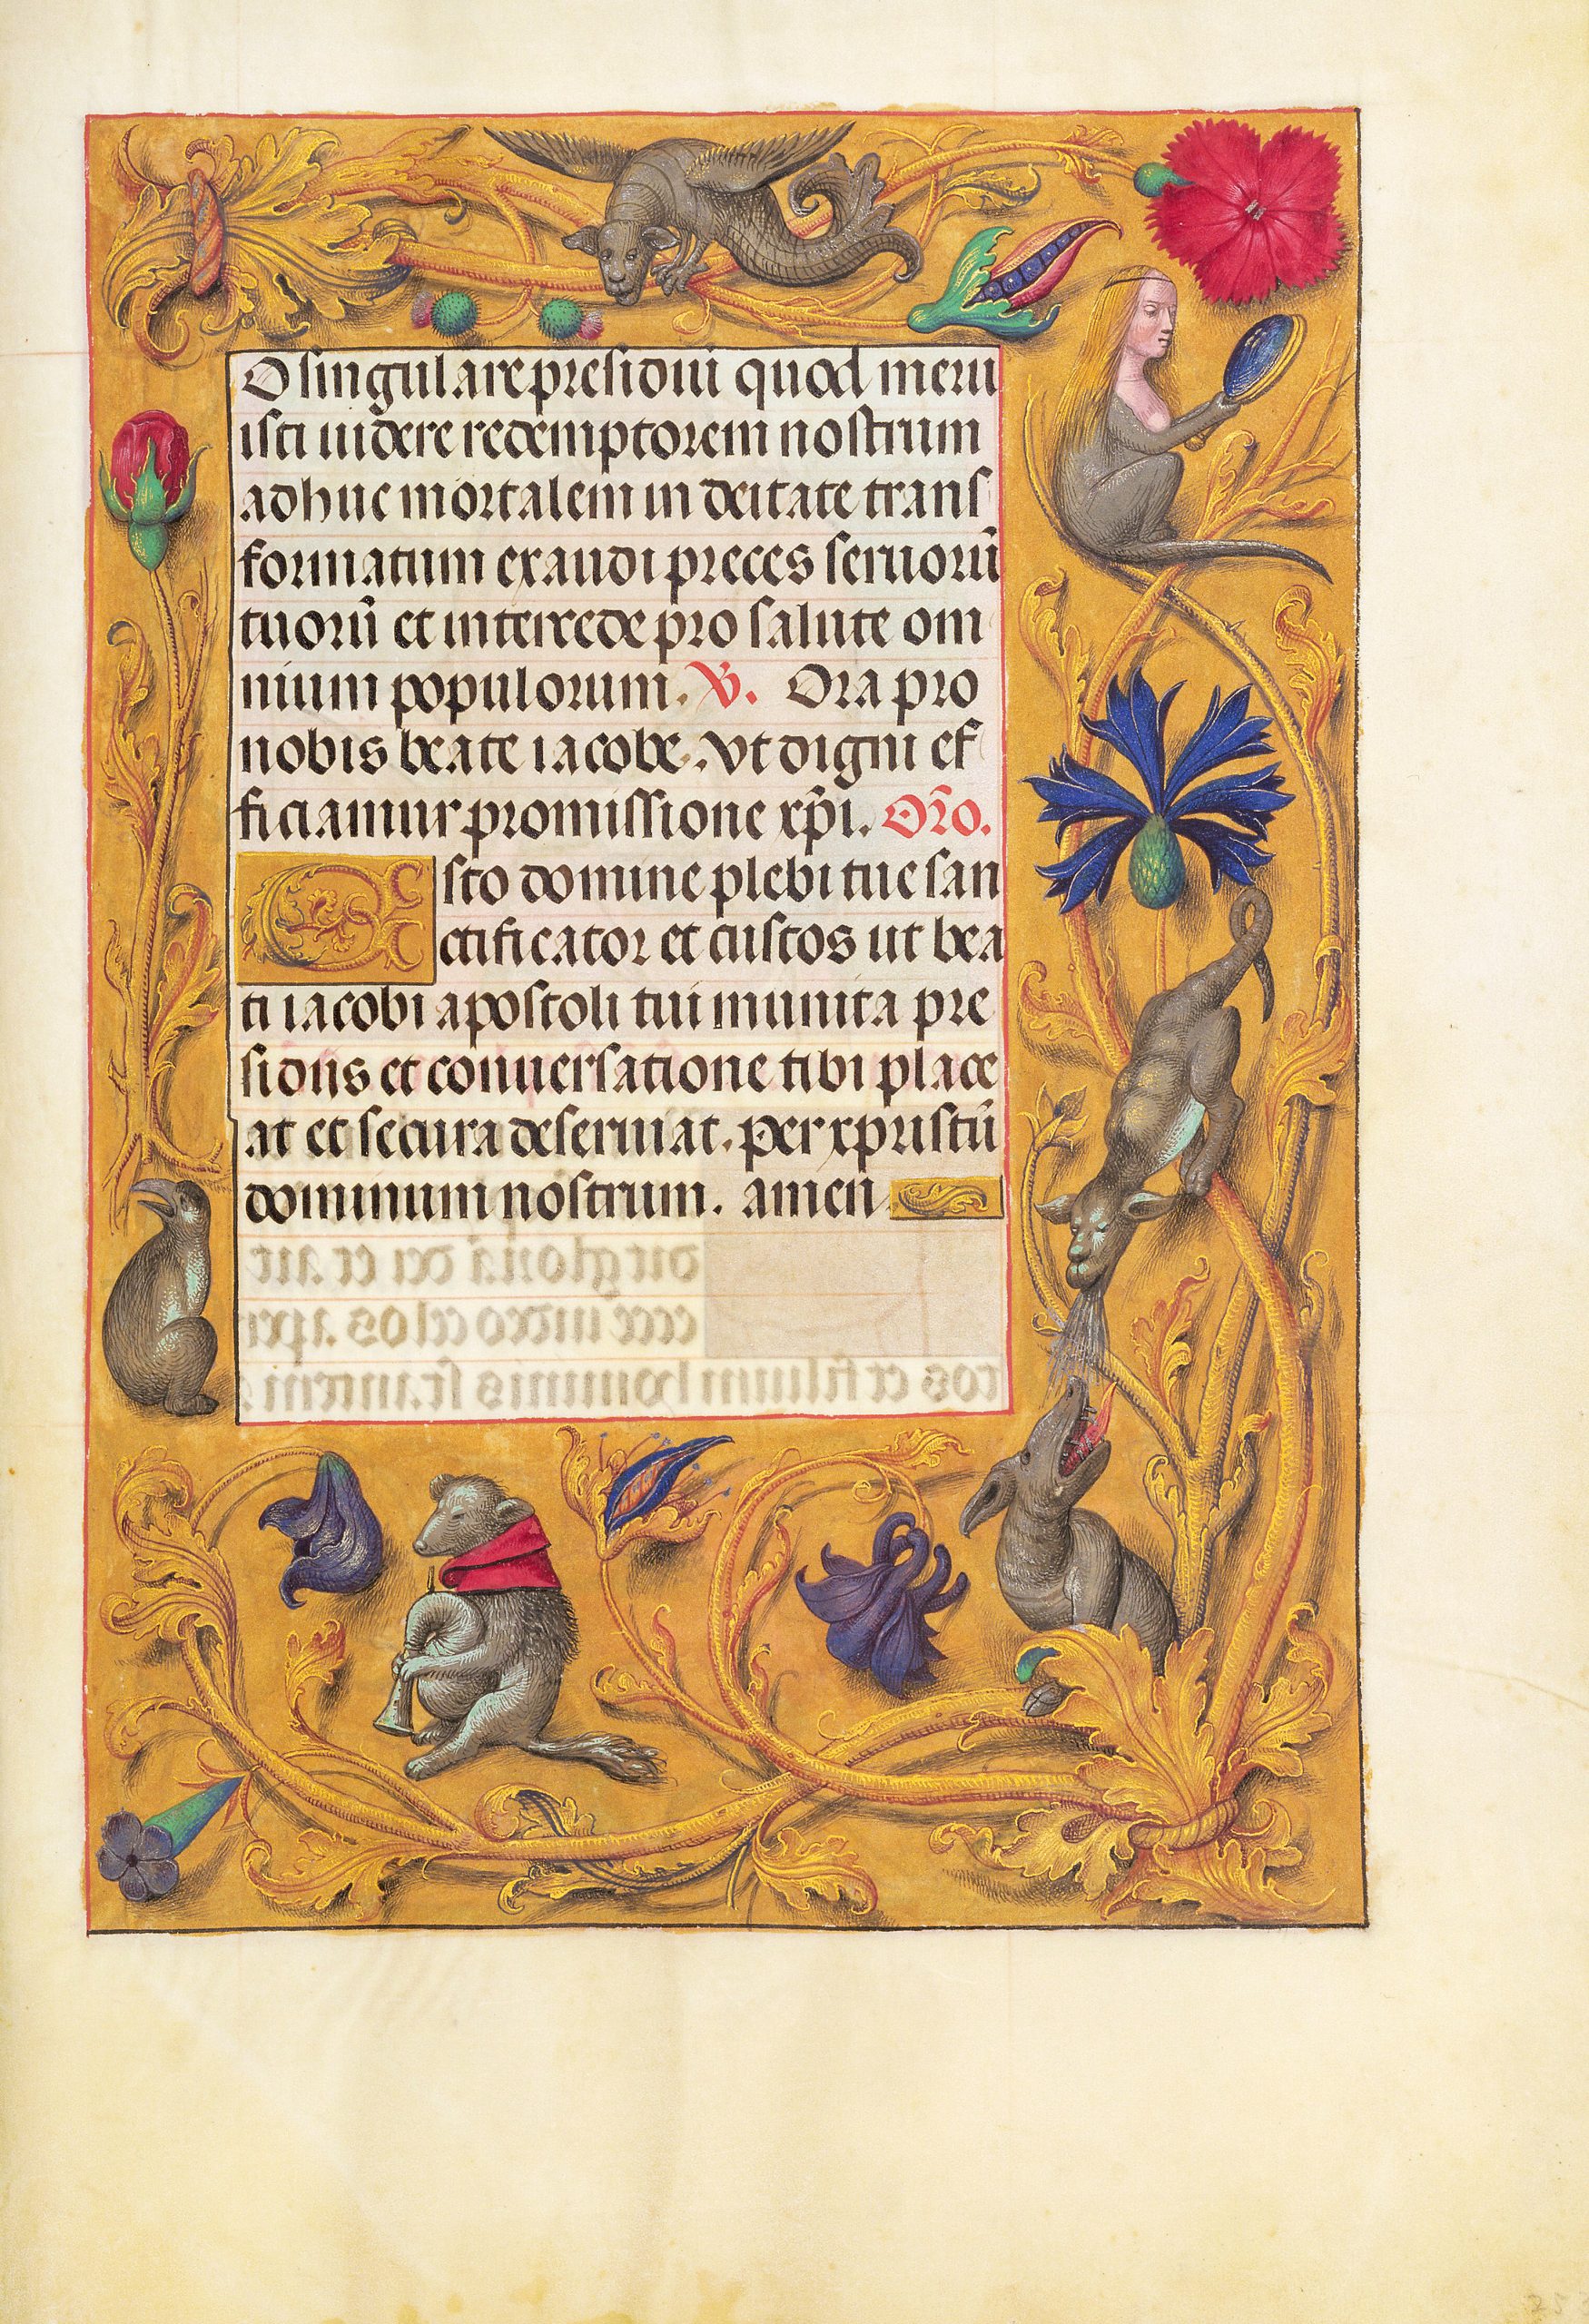 O singulare presidiũ quod meru
isti uidere redemptorem nostrum
adhuc mortalem in deitate trans
formatum exaudi preces seruorũ
tuorũ et intercede pro salute om
nium populorum. ℣. Ora pro
nobis beate iacobe. Vt digni ef
ficiamur promissione xp̃i. Or̃o.
Esto domine plebi tue san
ctificator et custos ut bea
ti iacobi apostoli tui munita pre
sidiis et conuersatione tibi place
at et secura deseruiat. per xpristũ
dominum nostrum. amen